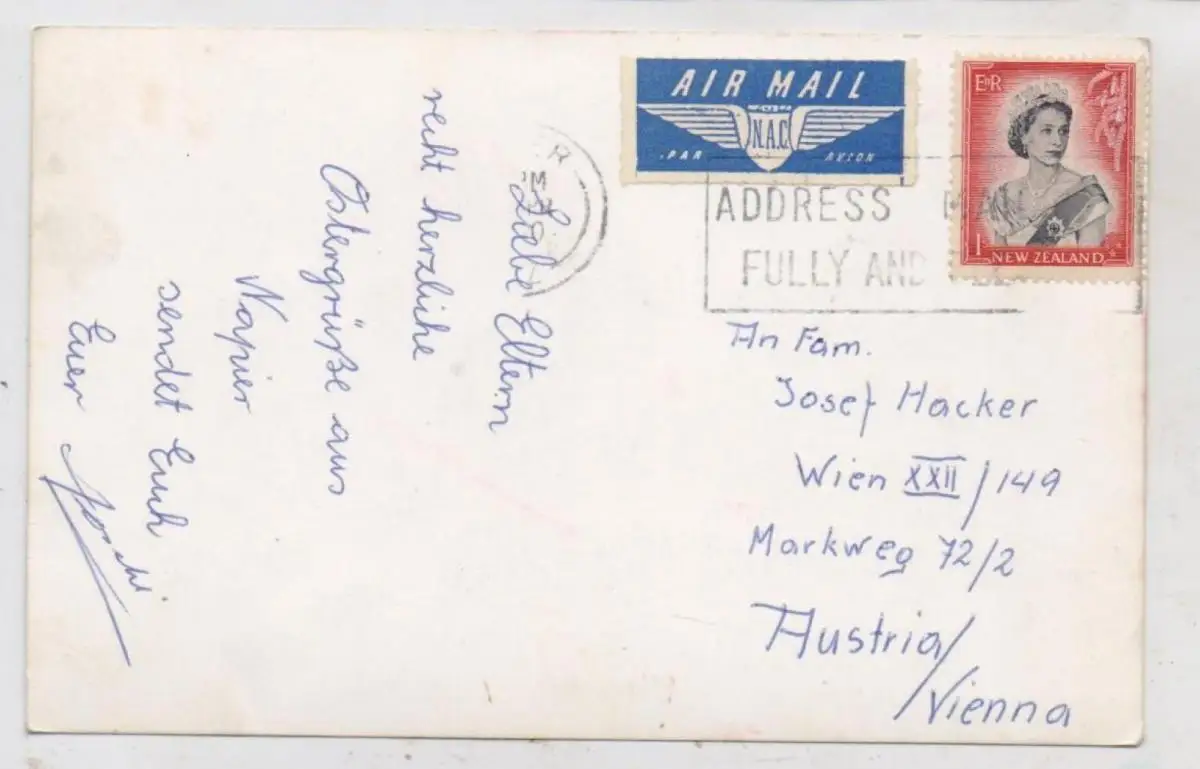 Liebe Eltern
recht herzliche
Ostergrüße aus
Napier
sendet Euch
Euer
AIR MAIL
N.A.C.
PAR AVION
E II R
1
NEW ZEALAND
ADDRESS MAIL
FULLY AND
An Fam.
Josef Hacker
Wien XXII/149
Markweg 72/2
Austria/
Vienna